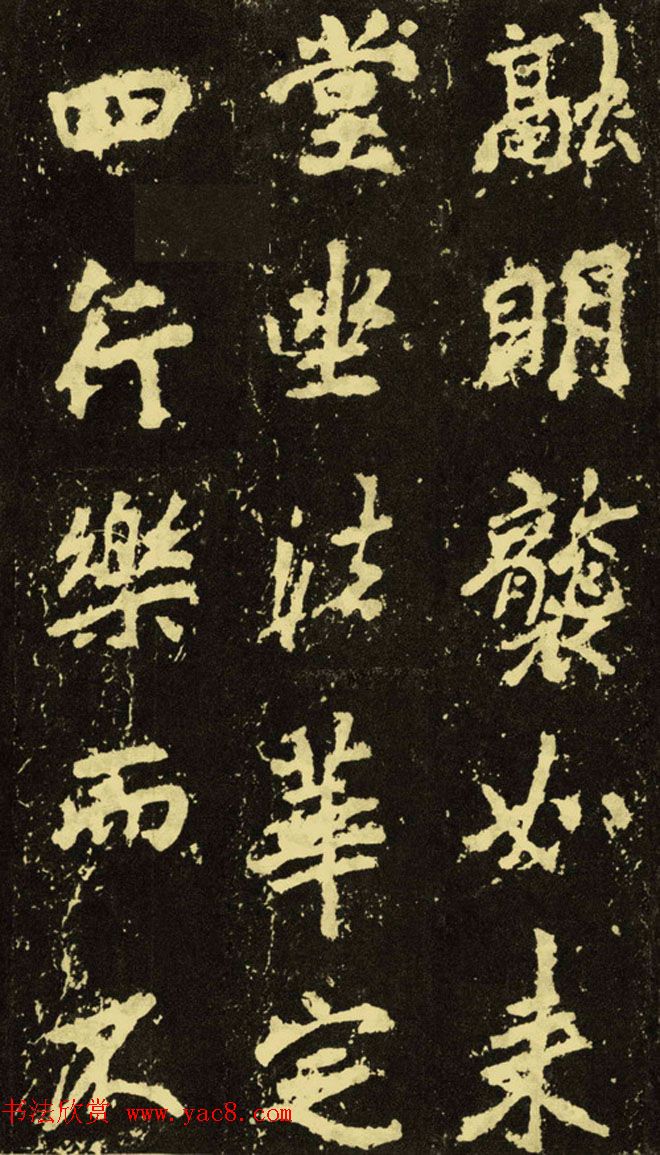 融明襲如来
堂坐法華定
四行樂而不
书法欣赏 www.yac8.com